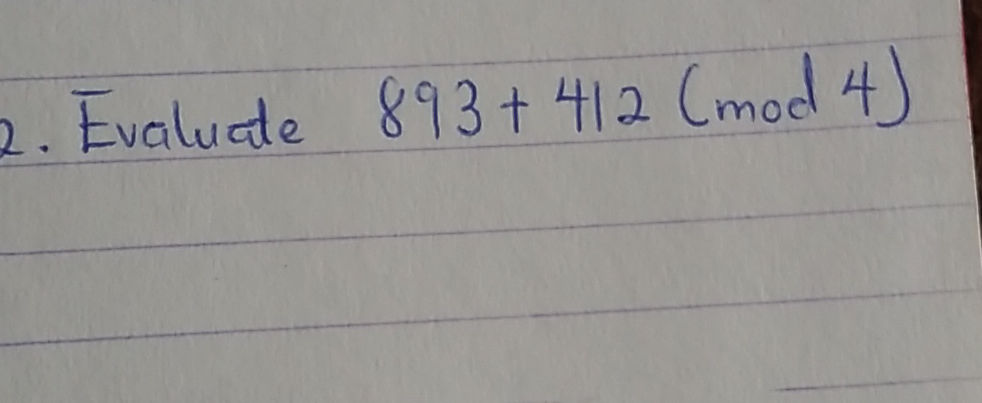 2. Evaluate 893 + 412 (mod 4)